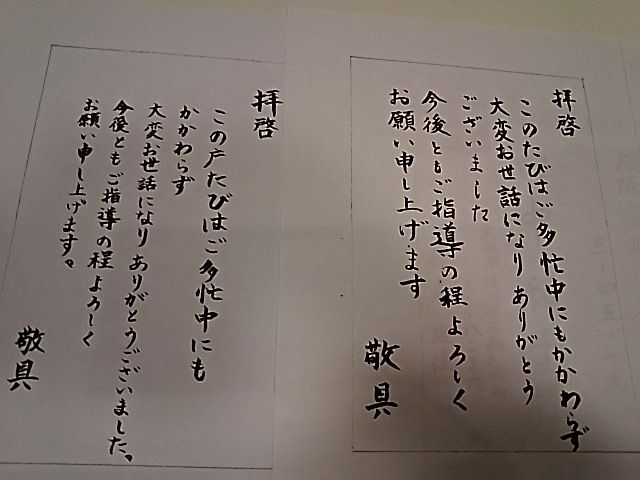 拝啓
このたびはご多忙中にもかかわらず
大変お世話になりありがとう
ございました
今後ともご指導の程よろしく
お願い申し上げます
敬具
拝啓
この戸たびはご多忙中にも
かかわらず
大変お世話になりありがとうございました。
今後ともご指導の程よろしく
お願い申し上げます。
敬具